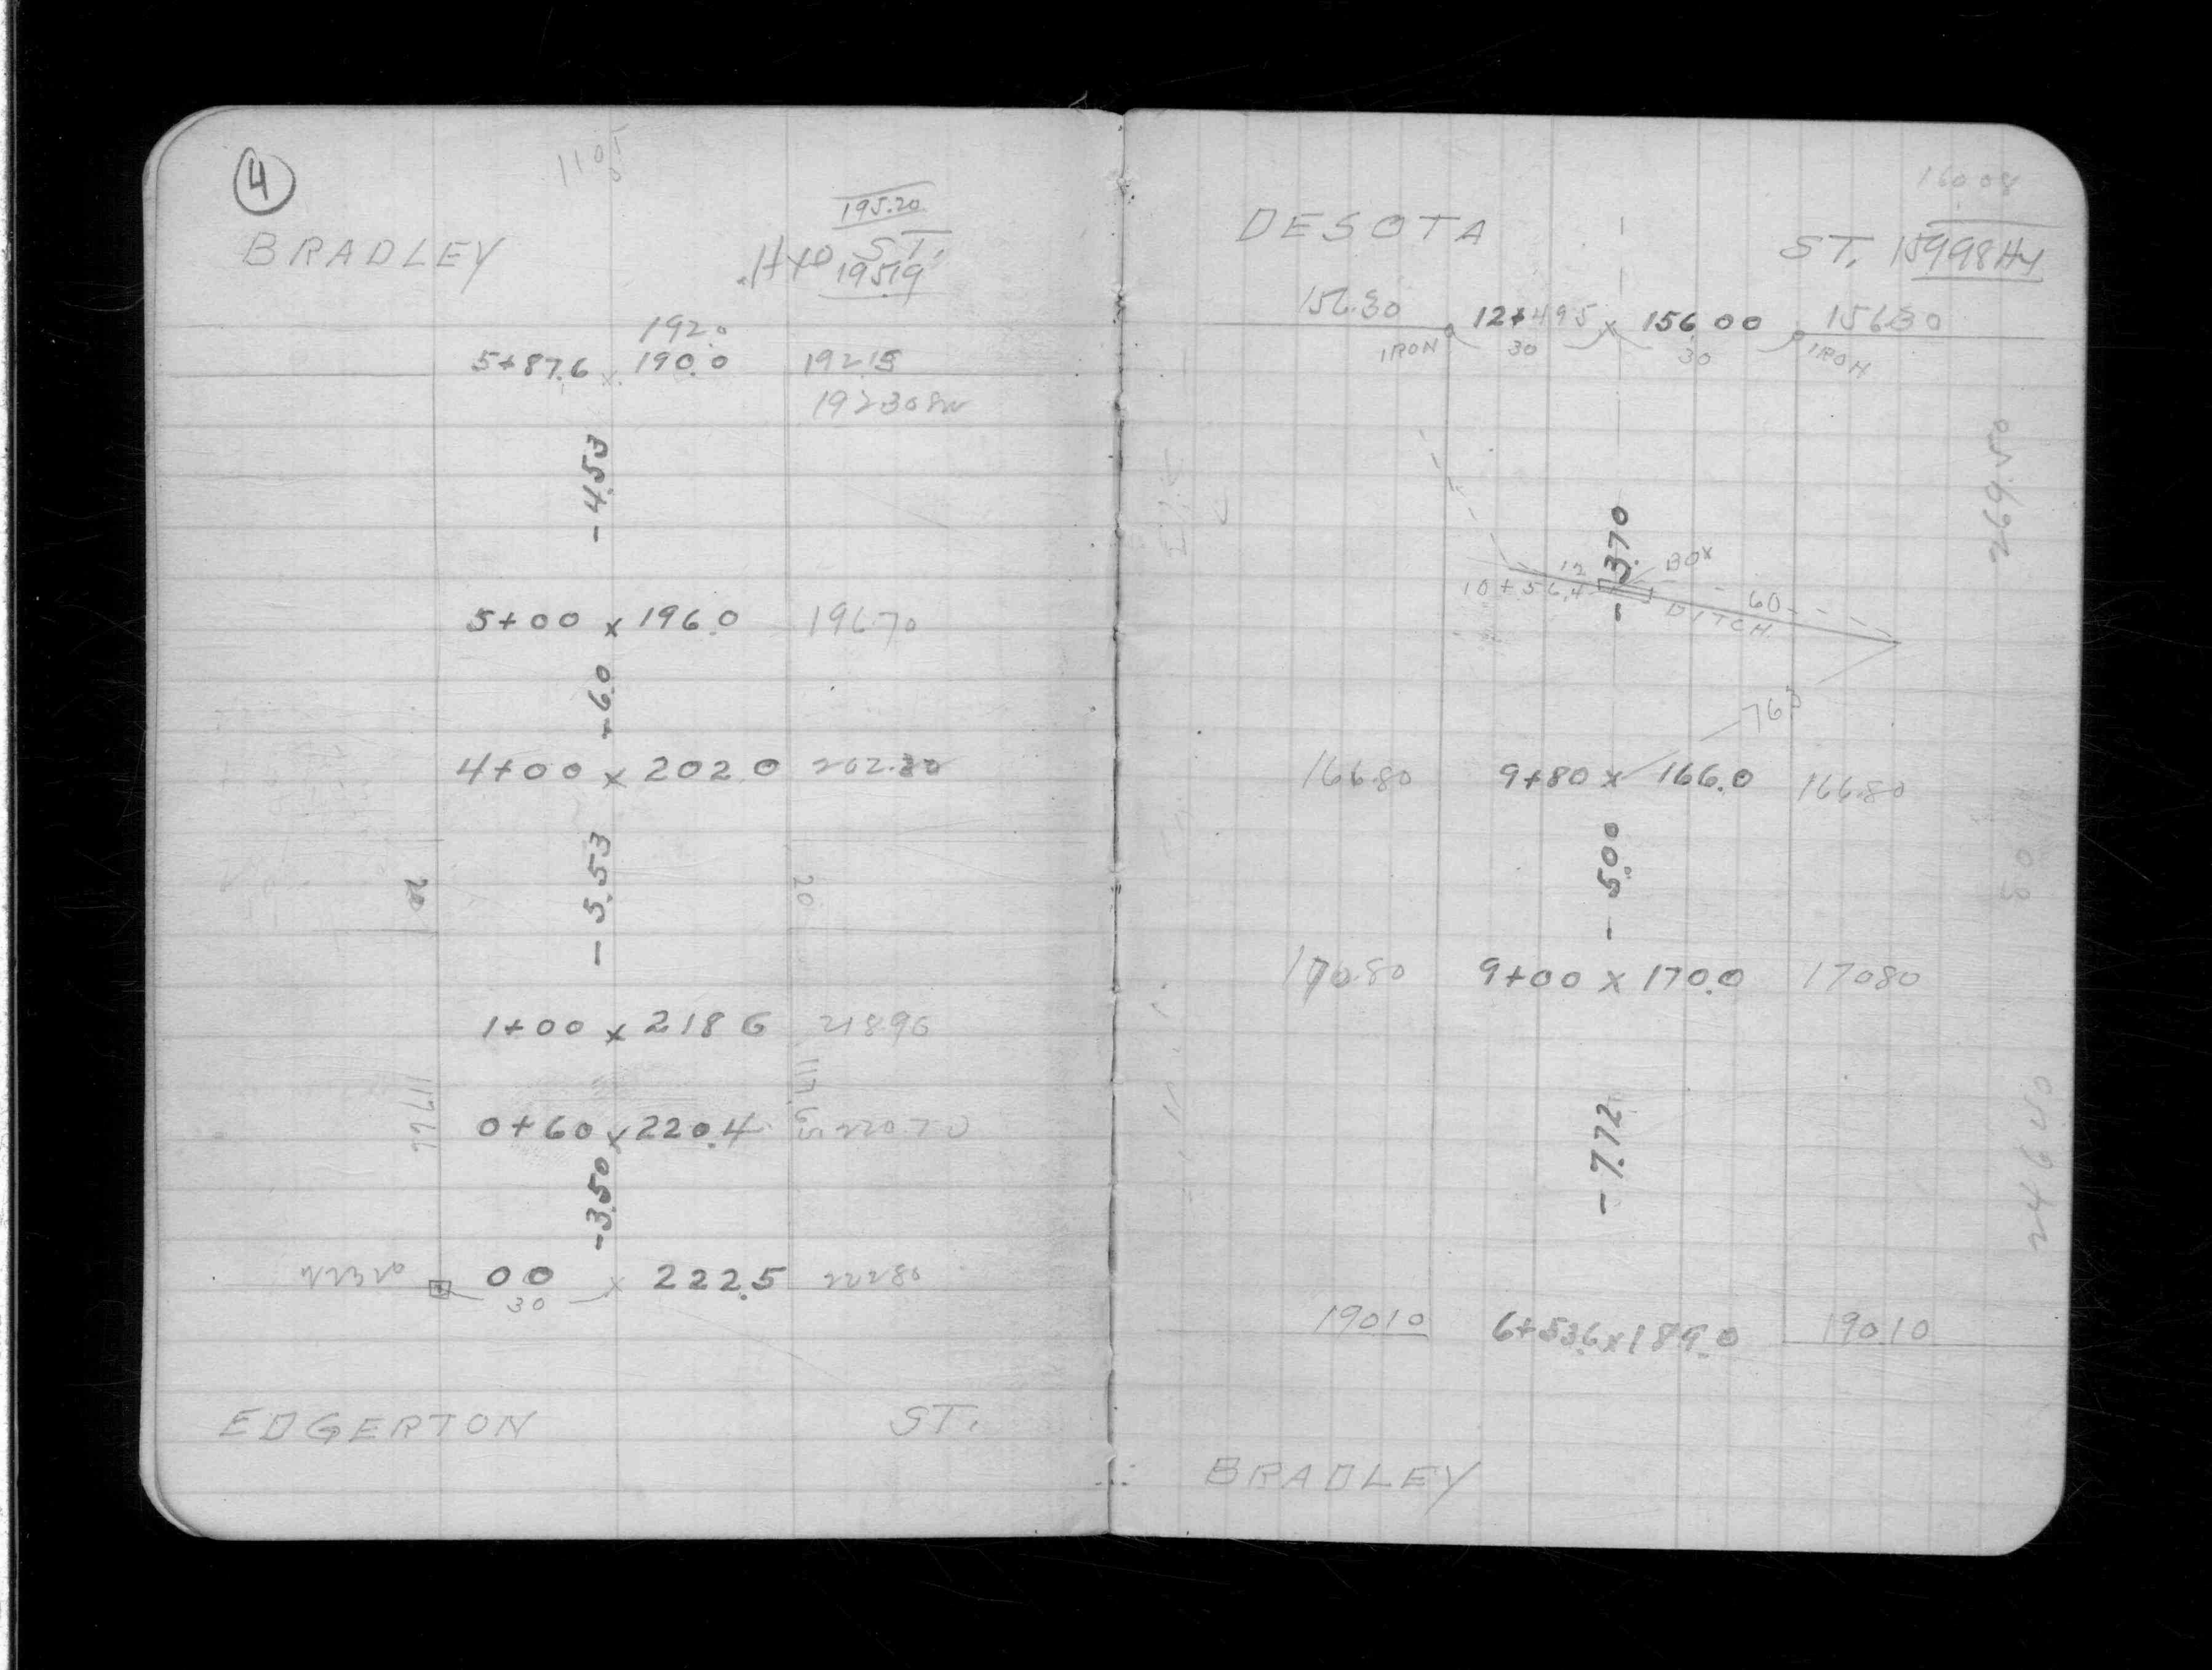 4
1105
195.20
BRADLEY ST.
Hyd 195.19
192.0
5+87.6 x 190.0 192.15
192.30
-4.53
5+00 x 196.0 196.70
-6.0
4+00 x 202.0 202.30
-5.53
20
1+00 x 218.6 218.96
117.6
0+60 x 220.4 220.70
-3.50
223.20 00 x 222.5 222.80
30
EDGERTON ST.
160.08
DESOTA ST. 159.98 Hy
156.30 12+49.5 x 156.00 156.30
IRON 30 30 IRON
269.50
-3.70
12 BOX
10+56.4 60
DITCH
76.3
166.80 9+80 x 166.0 166.80
-5.00
170.80 9+00 x 170.0 170.80
-7.72
246.40
190.10 6+53.6 x 189.0 190.10
BRADLEY